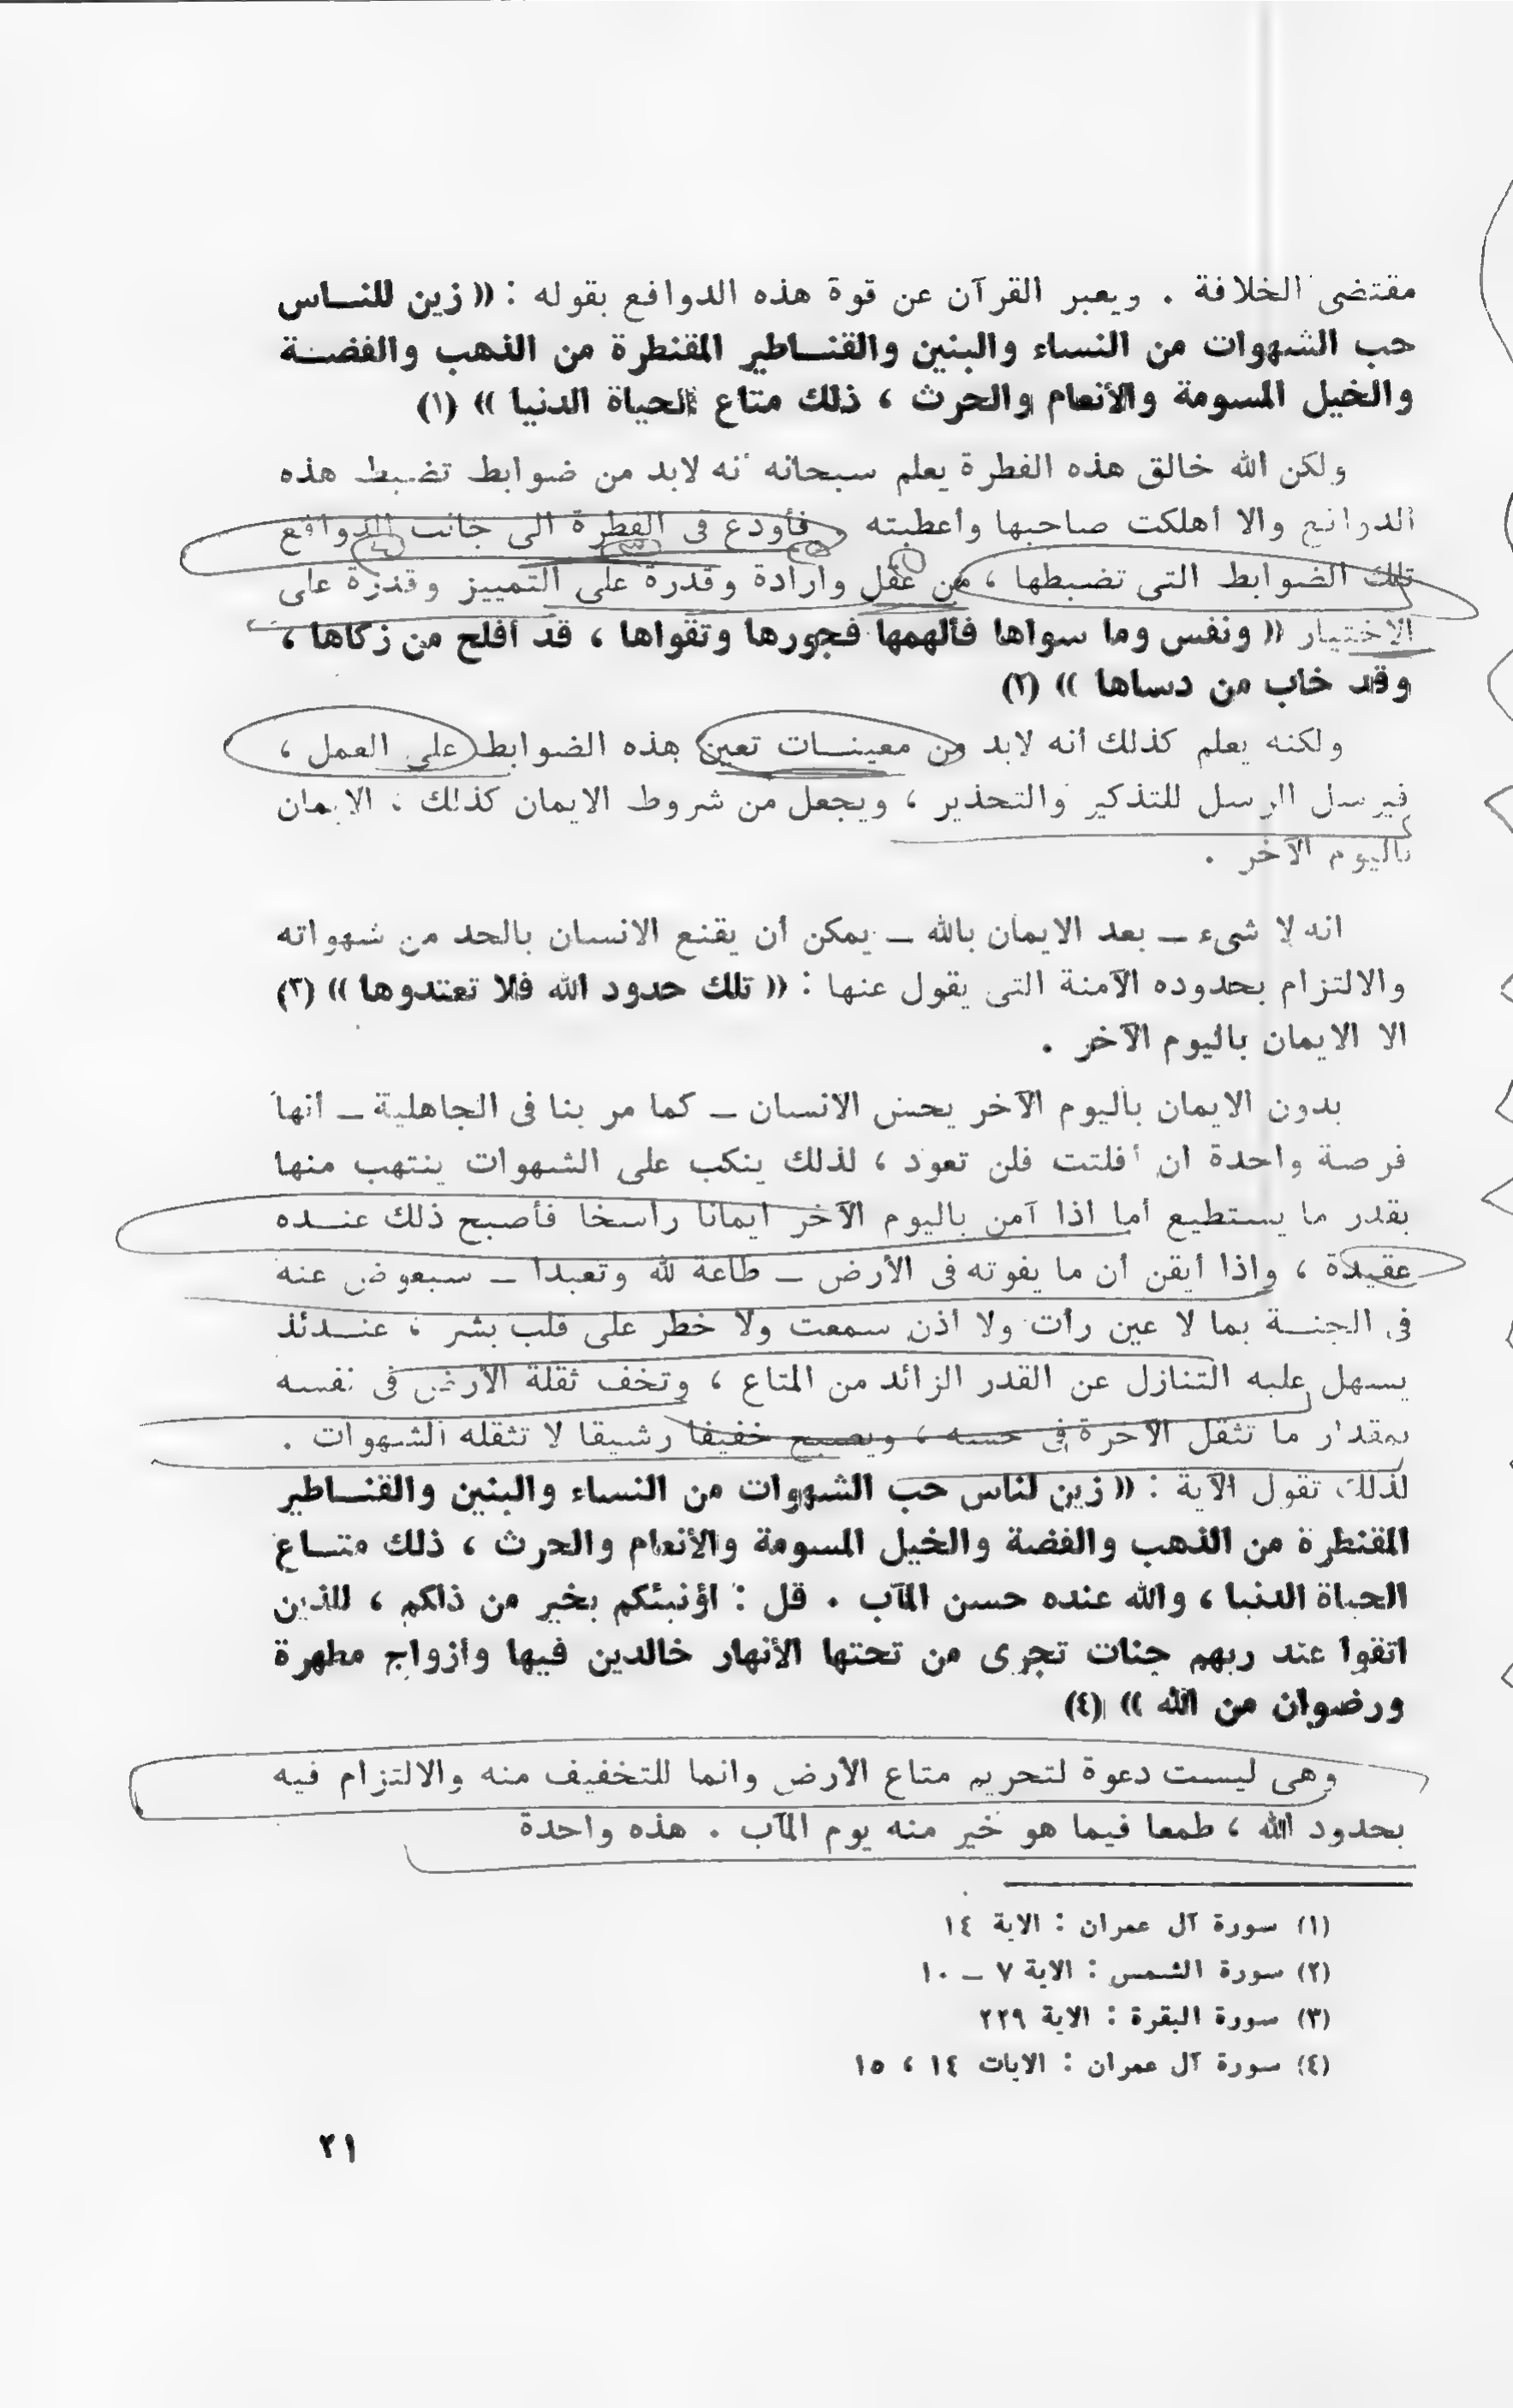 مقتضى الخلافة . ويعبر القرآن عن قوة هذه الدوافع بقوله : « زين للنــاس
حب الشهوات من النساء والبنين والقنــاطير المقنطرة من الذهب والفضــة
والخيل المسومة والأنعام والحرث ، ذلك متاع الحياة الدنيا » (١)
ولكن الله خالق هذه الفطرة يعلم سبحانه أنه لابد من ضوابط تضبط هذه
الدوافع والا أهلكت صاحبها وأعطبته . فأودع فى الفطرة الى جانب الدوافع
تلك الضوابط التى تضبطها ، من عقل وارادة وقدرة على التمييز وقدرة على
الاختيار « ونفس وما سواها فألهمها فجورها وتقواها ، قد أفلح من زكاها ،
وقد خاب من دساها » (٢)
ولكنه يعلم كذلك أنه لابد من معينــات تعين هذه الضوابط على العمل ،
فيرسل الرسل للتذكير والتحذير ، ويجعل من شروط الايمان كذلك ، الايمان
باليوم الآخر .
انه لا شىء ــ بعد الايمان بالله ــ يمكن أن يقنع الانسان بالحد من شهواته
والالتزام بحدوده الآمنة التى يقول عنها : « تلك حدود الله فلا تعتدوها » (٣)
الا الايمان باليوم الآخر .
بدون الايمان باليوم الآخر يحس الانسان ــ كما مر بنا فى الجاهلية ــ أنها
فرصة واحدة ان أفلتت فلن تعود ، لذلك ينكب على الشهوات ينتهب منها
بقدر ما يســتطيع أما اذا آمن باليوم الآخر ايمانا راسخا فأصبح ذلك عنــده
عقيدة ، واذا أيقن أن ما يفوته فى الأرض ــ طاعة لله وتعبدا ــ سيعوض عنه
فى الجنــة بما لا عين رأت ولا أذن سمعت ولا خطر على قلب بشر ، عنــدئذ
يسهل عليه التنازل عن القدر الزائد من المتاع ، وتخف ثقلة الأرض فى نفسه
بمقدار ما تثقل الآخرة فى حسه ، ويصبح خفيفا رشيقا لا تثقله الشهوات .
لذلك تقول الآية : « زين لناس حب الشهوات من النساء والبنين والقنــاطير
المقنطرة من الذهب والفضة والخيل المسومة والأنعام والحرث ، ذلك متــاع
الحياة الدنيا ، والله عنده حسن المآب . قل : أؤنبئكم بخير من ذلكم ، للذين
اتقوا عند ربهم جنات تجرى من تحتها الأنهار خالدين فيها وأزواج مطهرة
ورضوان من الله » (٤)
وهى ليست دعوة لتحريم متاع الأرض وانما للتخفيف منه والالتزام فيه
بحدود الله ، طمعا فيما هو خير منه يوم المآب . هذه واحدة
(١) سورة آل عمران : الاية ١٤
(٢) سورة الشمس : الاية ٧ ــ ١٠
(٣) سورة البقرة : الاية ٢٢٩
(٤) سورة آل عمران : الايات ١٤ ، ١٥
٢١